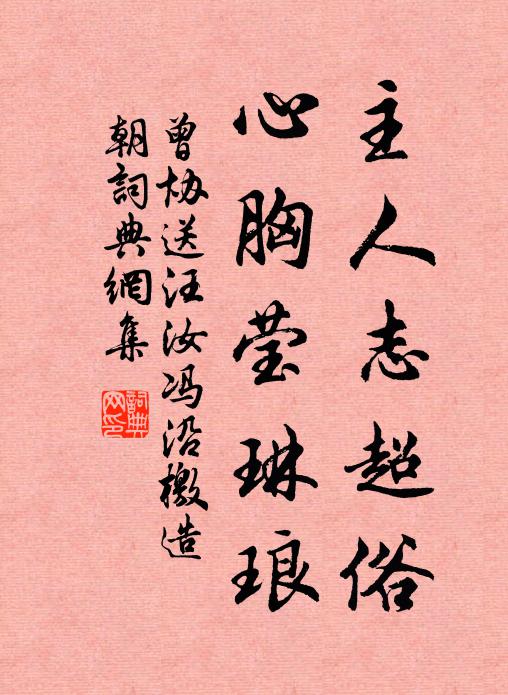 主人志超俗
心胸莹琳琅
曾协送汪汝冯沿檄造
朝詞典網集
詞典网印